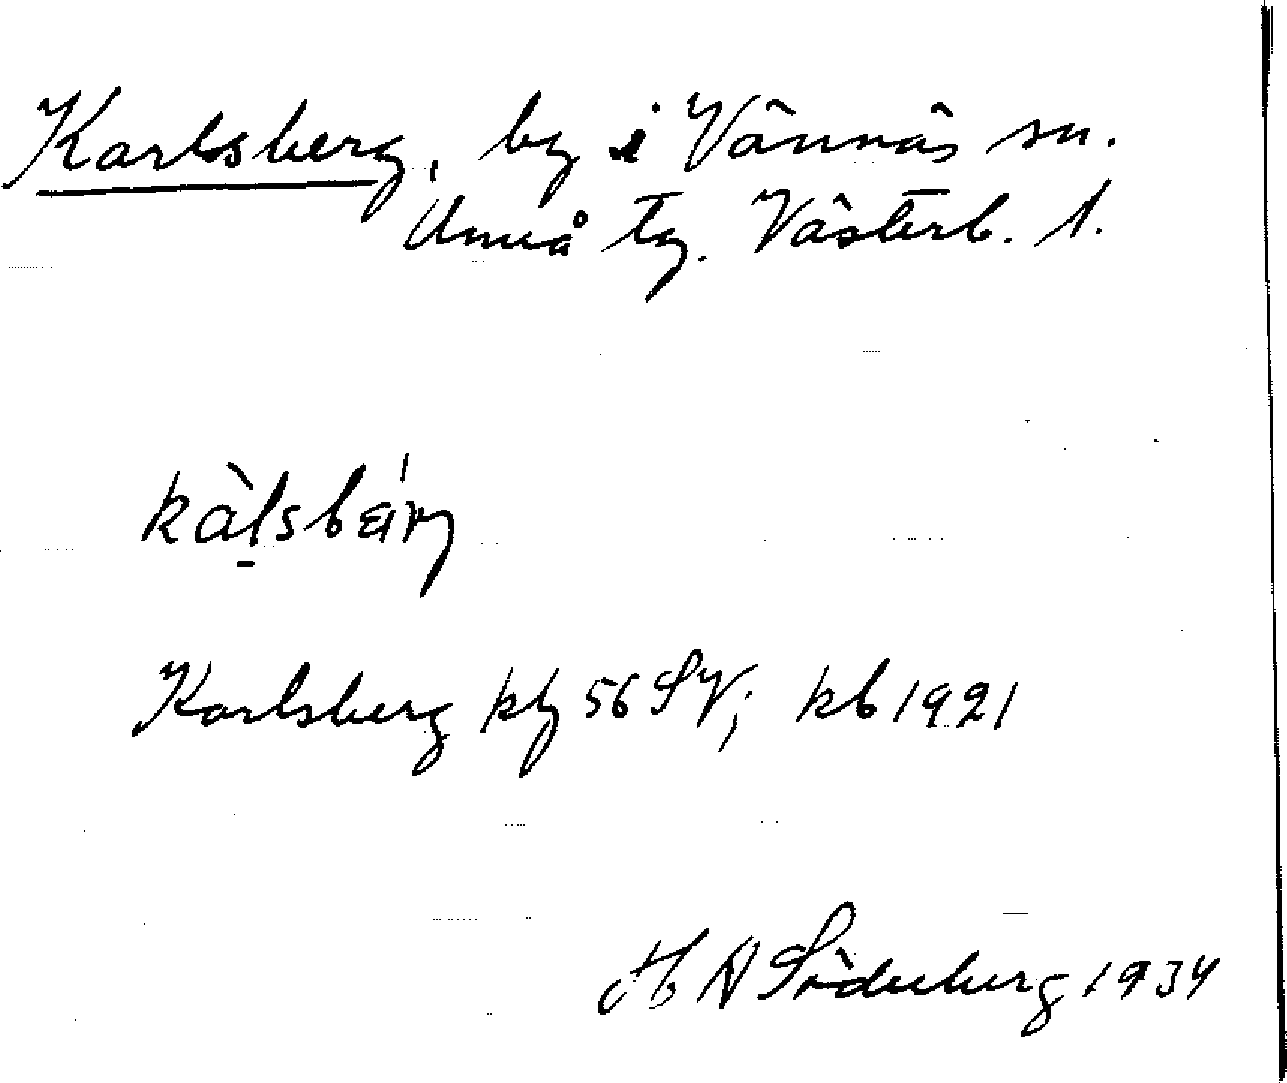 Karlsberg, by i Vännäs sn.
Umeå tg. Västerb. l.
kàlsbɛ́rg
Karlsberg kf 56 SV; kb 1921
H A Söderberg 1934